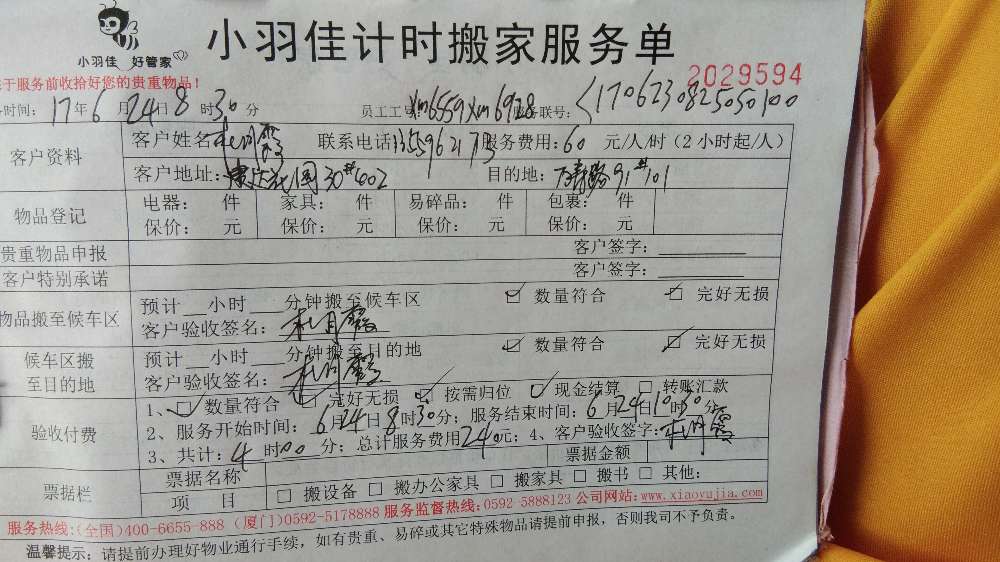 小羽佳 好管家
小羽佳计时搬家服务单
于服务前收拾好您的贵重物品！
2029594
务时间：17年6月24日8时30分 员工工号xm6559xm6928服务联号：1706230825050100
客户资料
客户姓名 联系电话13559621713服务费用：60元/人/时（2小时起/人）
客户地址：康庄花园30#602 目的地：91#101
物品登记
电器： 件 家具： 件 易碎品： 件 包裹： 件
保价： 元 保价： 元 保价： 元 保价： 元
贵重物品申报 客户签字：
客户特别承诺 客户签字：
物品搬至候车区
预计__小时___分钟搬至候车区 数量符合 完好无损
客户验收签名：
候车区搬
至目的地
预计__小时___分钟搬至目的地 数量符合 完好无损
客户验收签名：
验收付费
1、 数量符合 完好无损 按需归位 现金结算 转账汇款
2、服务开始时间：6月24日8时30分；服务结束时间：6月24日10时30分
3、共计：4时00分；总计服务费用240元；4、客户验收签字：
票据栏
票据名称 票据金额
项 目 搬设备 搬办公家具 搬家具 搬书 其他：
服务热线:(全国)400-6655-888（厦门)0592-5178888 服务监督热线：0592-5888123 公司网站：www.xiaoyujia.com
温馨提示：请提前办理好物业通行手续，如有贵重、易碎或其它特殊物品请提前申报，否则我司不予负责。